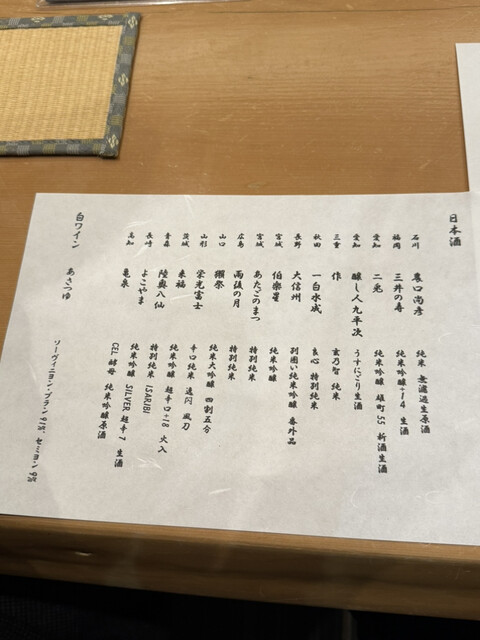 日本酒
石川 農口尚彦 純米 無濾過生原酒
福岡 三井の寿 純米吟醸+14 生酒
愛知 二兎 純米吟醸 雄町55 新酒生酒
愛知 醸し人九平次 うすにごり生酒
三重 作 玄乃智 純米
秋田 一白水成 良心 特別純米
長野 大信州 別囲い純米吟醸 番外品
宮城 伯楽星 純米吟醸
宮城 あたごのまつ 特別純米
広島 雨後の月 特別純米
山口 獺祭 純米大吟醸 四割五分
山形 栄光冨士 辛口純米 逸閃 風刀
茨城 来福 純米吟醸 超辛口+18 火入
青森 陸奥八仙 特別純米 ISARIBI
長崎 よこやま 純米吟醸 SILVER 超辛7 生酒
高知 亀泉 CEL酵母 純米吟醸原酒
白ワイン あきつゆ ソーヴィニヨン・ブラン 91%、セミヨン 9%